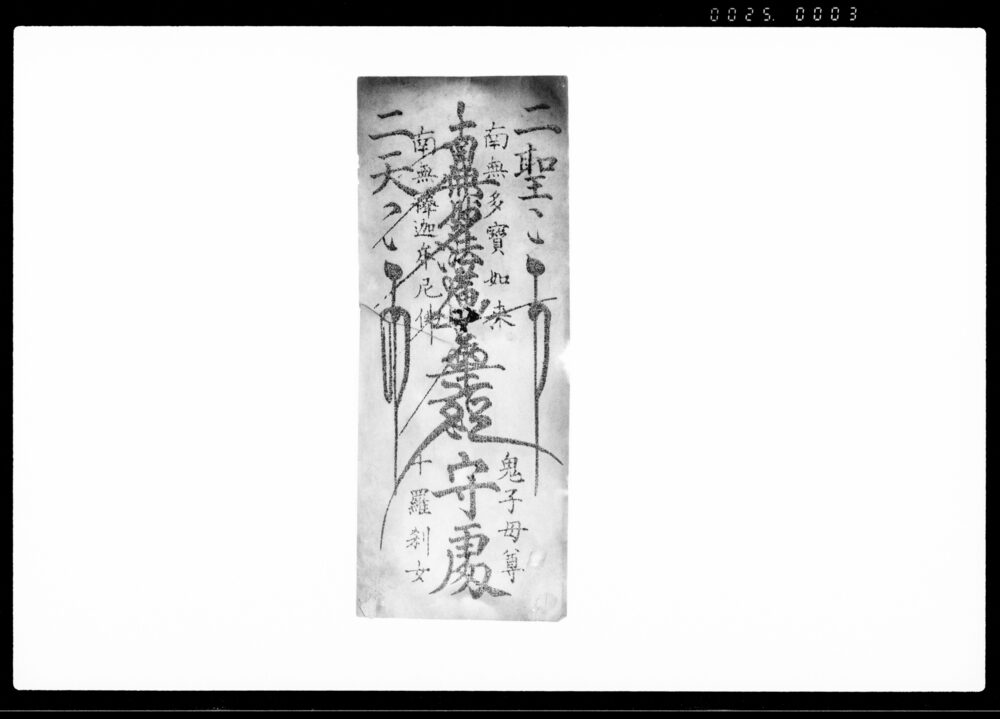 0025. 0003
二聖〻
南無多寳如来
鬼子母尊
南無妙法蓮華経
守處
南無釋迦牟尼佛
十羅刹女
二天〻